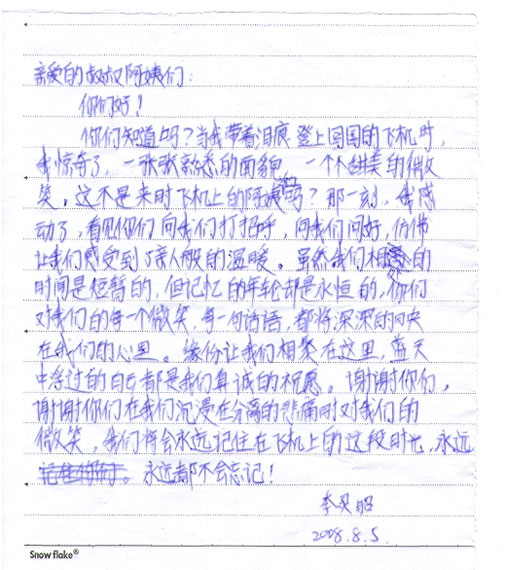 亲爱的叔叔阿姨们：
你们好！
你们知道吗？当我带着泪痕登上回国的飞机时，
我惊奇了，一张张熟悉的面貌，一个个甜美的微
笑。这不是来时飞机上的阿姨吗？那一刻，我感
动了，看见你们向我们打招呼，向我们问好，仿佛
让我们感受到了亲人般的温暖。虽然我们相处的
时间是短暂的，但记忆的年轮却是永恒的，你们
对我们的每一个微笑，每一句话语，都将深深的映
在我们的心里。缘份让我们相聚在这里，蓝天
中浮过的白云都是我们真诚的祝愿。谢谢你们，
谢谢你们在我们沉浸在分离的悲痛时对我们的
微笑，我们将会永远记住在飞机上的这段时光，永远
永远都不会忘记！
李
2008.8.5.
Snow flake®